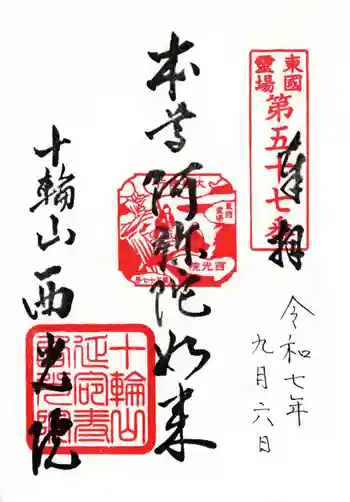 東國
靈場
第五十七番
奉拝
令和七年
九月六日
本尊阿弥陀如来
東國
靈場
西光院
十輪山西光院
十輪山
延命寺